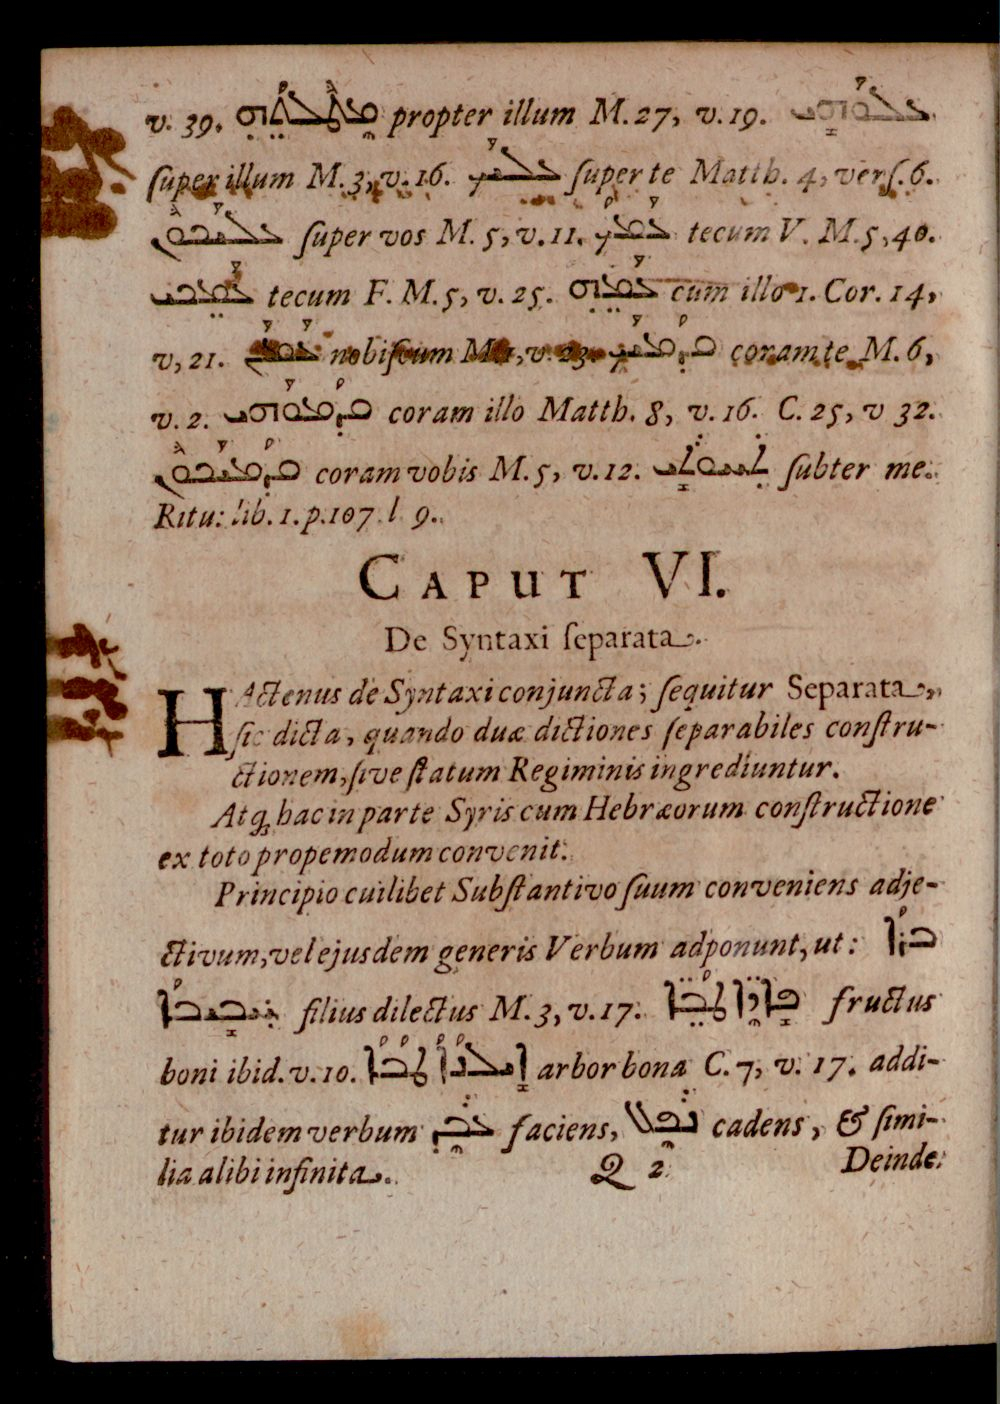 v. 39. ܡܛܠܬܗ propter illum M. 27, v. 19. ܥܠܘܗܝ
ſuper illum M. 3, v. 16. ܥܠܝܟ ſuper te Matth. 4, verſ. 6.
ܥܠܝܟܘܢ ſuper vos M. 5, v. 11. ܥܡܟ tecum V. M. 5, 40.
ܥܡܟܝ tecum F. M. 5, v. 25. ܥܡܗ cum illo 1. Cor. 14,
v, 21. ܥܡܢ nobiſcum M. 1, v. 23. ܩܕܡܝܟ coram te M. 6,
v. 2. ܩܕܡܘܗܝ coram illo Matth. 8, v. 16. C. 25, v 32.
ܩܕܡܝܟܘܢ coram vobis M. 5, v. 12. ܬܚܘܬܝ ſubter me.
Ritu: lib. 1. p. 107 l 9.
CAPUT VI.
De Syntaxi ſeparata.
HActenus de Syntaxi conjuncta; ſequitur Separata,
ſic dicta, quando duæ dictiones ſeparabiles conſtru-
ctionem, ſive ſtatum Regiminis ingrediuntur.
Atq; hac in parte Syris cum Hebræorum conſtructione
ex toto propemodum convenit.
Principio cuilibet Subſtantivo ſuum conveniens adje-
ctivum, vel ejusdem generis Verbum adponunt, ut: ܒܪܐ
ܚܒܝܒܐ filius dilectus M. 3, v. 17. ܦܐܪܐ ܛܒܐ fructus
boni ibid. v. 10. ܐܝܠܢܐ ܛܒܐ arbor bona C. 7, v. 17. addi-
tur ibidem verbum ܥܒܕ faciens, ܢܦܠ cadens, & ſimi-
lia alibi infinita.
Q 2
Deinde